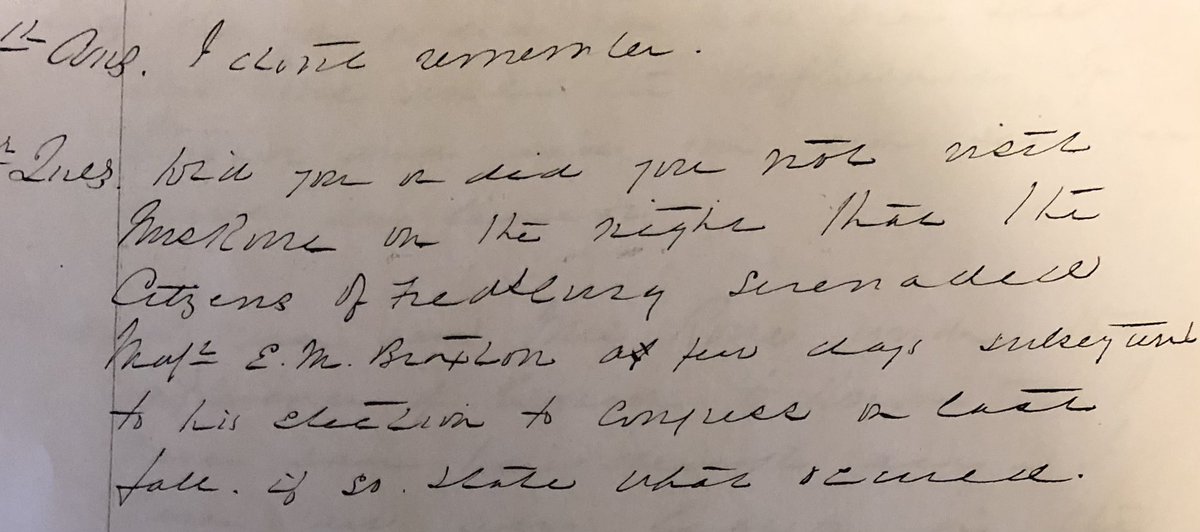 Ans. I dont remember.
Ques. Did you or did you not visit
on the night that the
Citizens of Fredsburg serenaded
Majr E. M. Braxton a few days subsequent
to his election to Congress on last
fall. if so. state what occured.